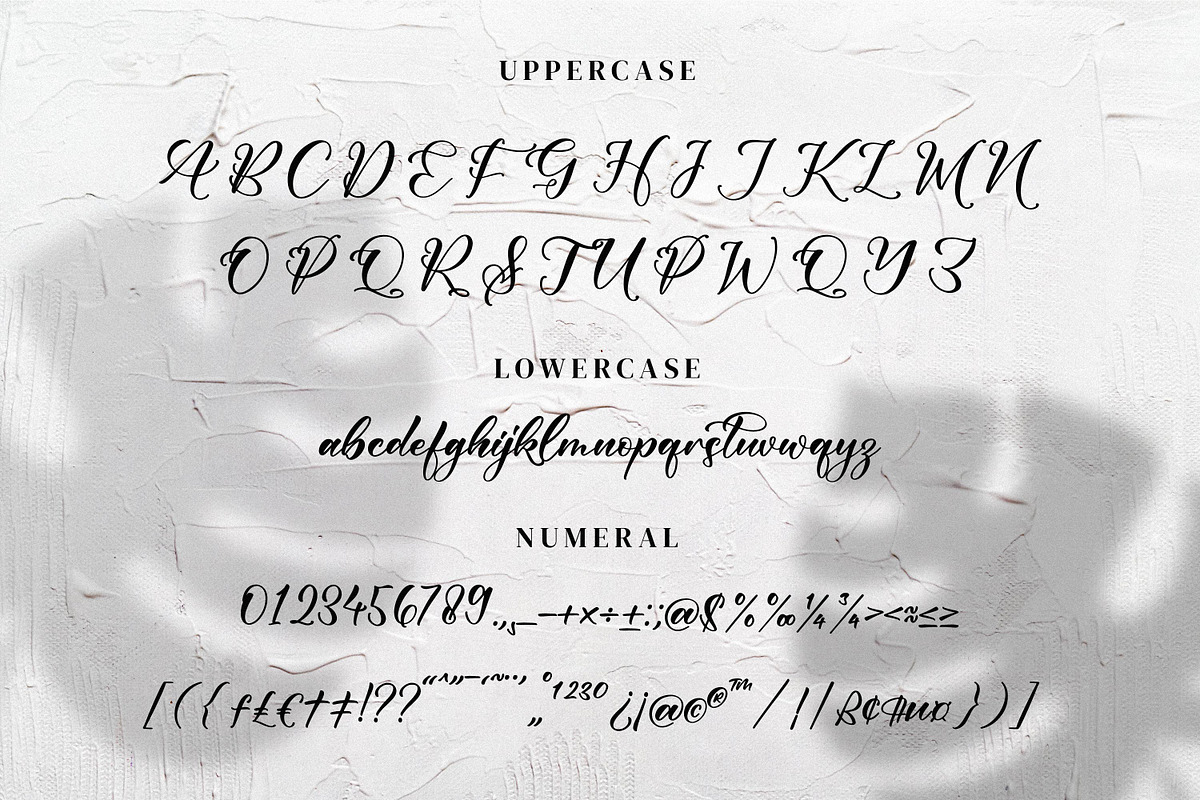 UPPERCASE
A B C D E F G H I J K L M N
O P Q R S T U P W Q Y Z
LOWERCASE
abcdefghijklmnopqrstuvwqyz
NUMERAL
0123456789.,¸_–+×÷±:;@$%‰¼¾><≈≤≥
[({ƒ£€†‡!??